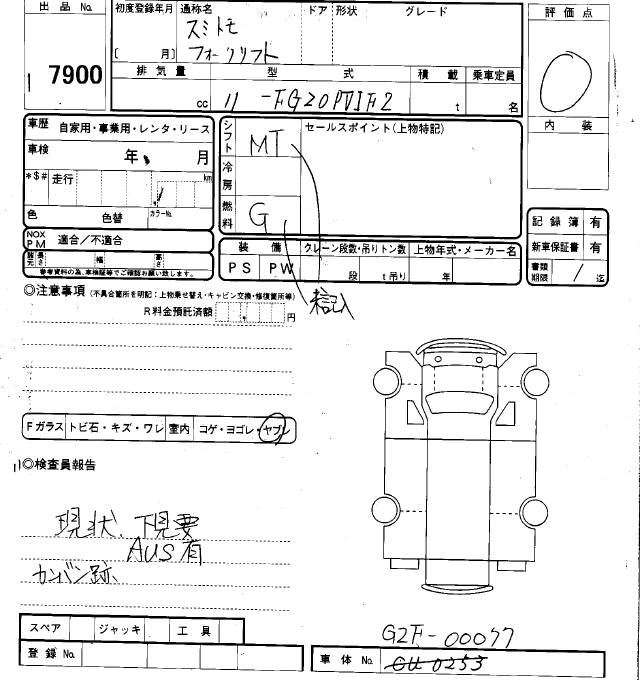 出品 No.
7900
初度登録年月 通称名 ドア 形状 グレード
スミトモ
〔 月〕 フォークリフト
排気量 型式 積載 乗車定員
cc 11-FG20PVIF2 t 名
評価点
内装
車歴 自家用・事業用・レンタ・リース
車検 年 月
*$# 走行 km
色 色替 カラーNo.
NOX PM 適合／不適合
諸元 長さ 幅 高さ
参考資料の為、車検証等でご確認お願い致します。
シフト MT
冷房
燃料 G
セールスポイント(上物特記)
装備 クレーン段数・吊りトン数 上物年式・メーカー名
PS PW 段 t吊り 年
記録簿 有
新車保証書 有
書類期限 / 迄
◎注意事項 (不具合箇所を明記：上物乗せ替え・キャビン交換・修復箇所等)
未記入
R料金預託済額 円
Fガラス トビ石・キズ・ワレ 室内 コゲ・ヨゴレ・ヤブレ
◎検査員報告
現状、下見要
AUS有
カンバン跡
スペア ジャッキ 工具
登録 No.
G2F-00077
車体 No. CU0253